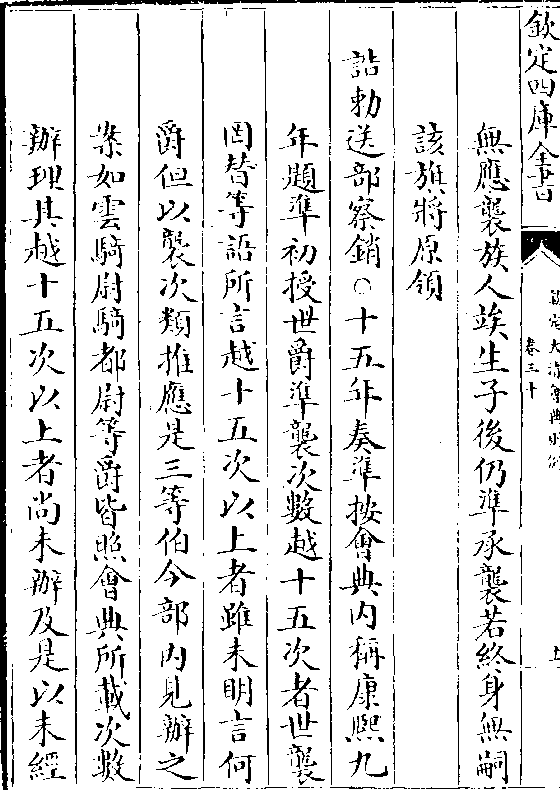 欽定四庫全書
欽定大清會典則例
卷三十
無應襲族人竢生子後仍準承襲若終身無嗣
該旗將原領
誥勅送部察銷○十五年奏準按會典内稱康熙九
年題準初授世爵準襲次數越十五次者世襲
罔替等語所言越十五次以上者雖未明言何
爵但以襲次類推應是三等伯今部内見辦之
案如雲騎尉騎都尉等爵皆照會典所載次數
辦理其越十五次以上者尚未辦及是以未經